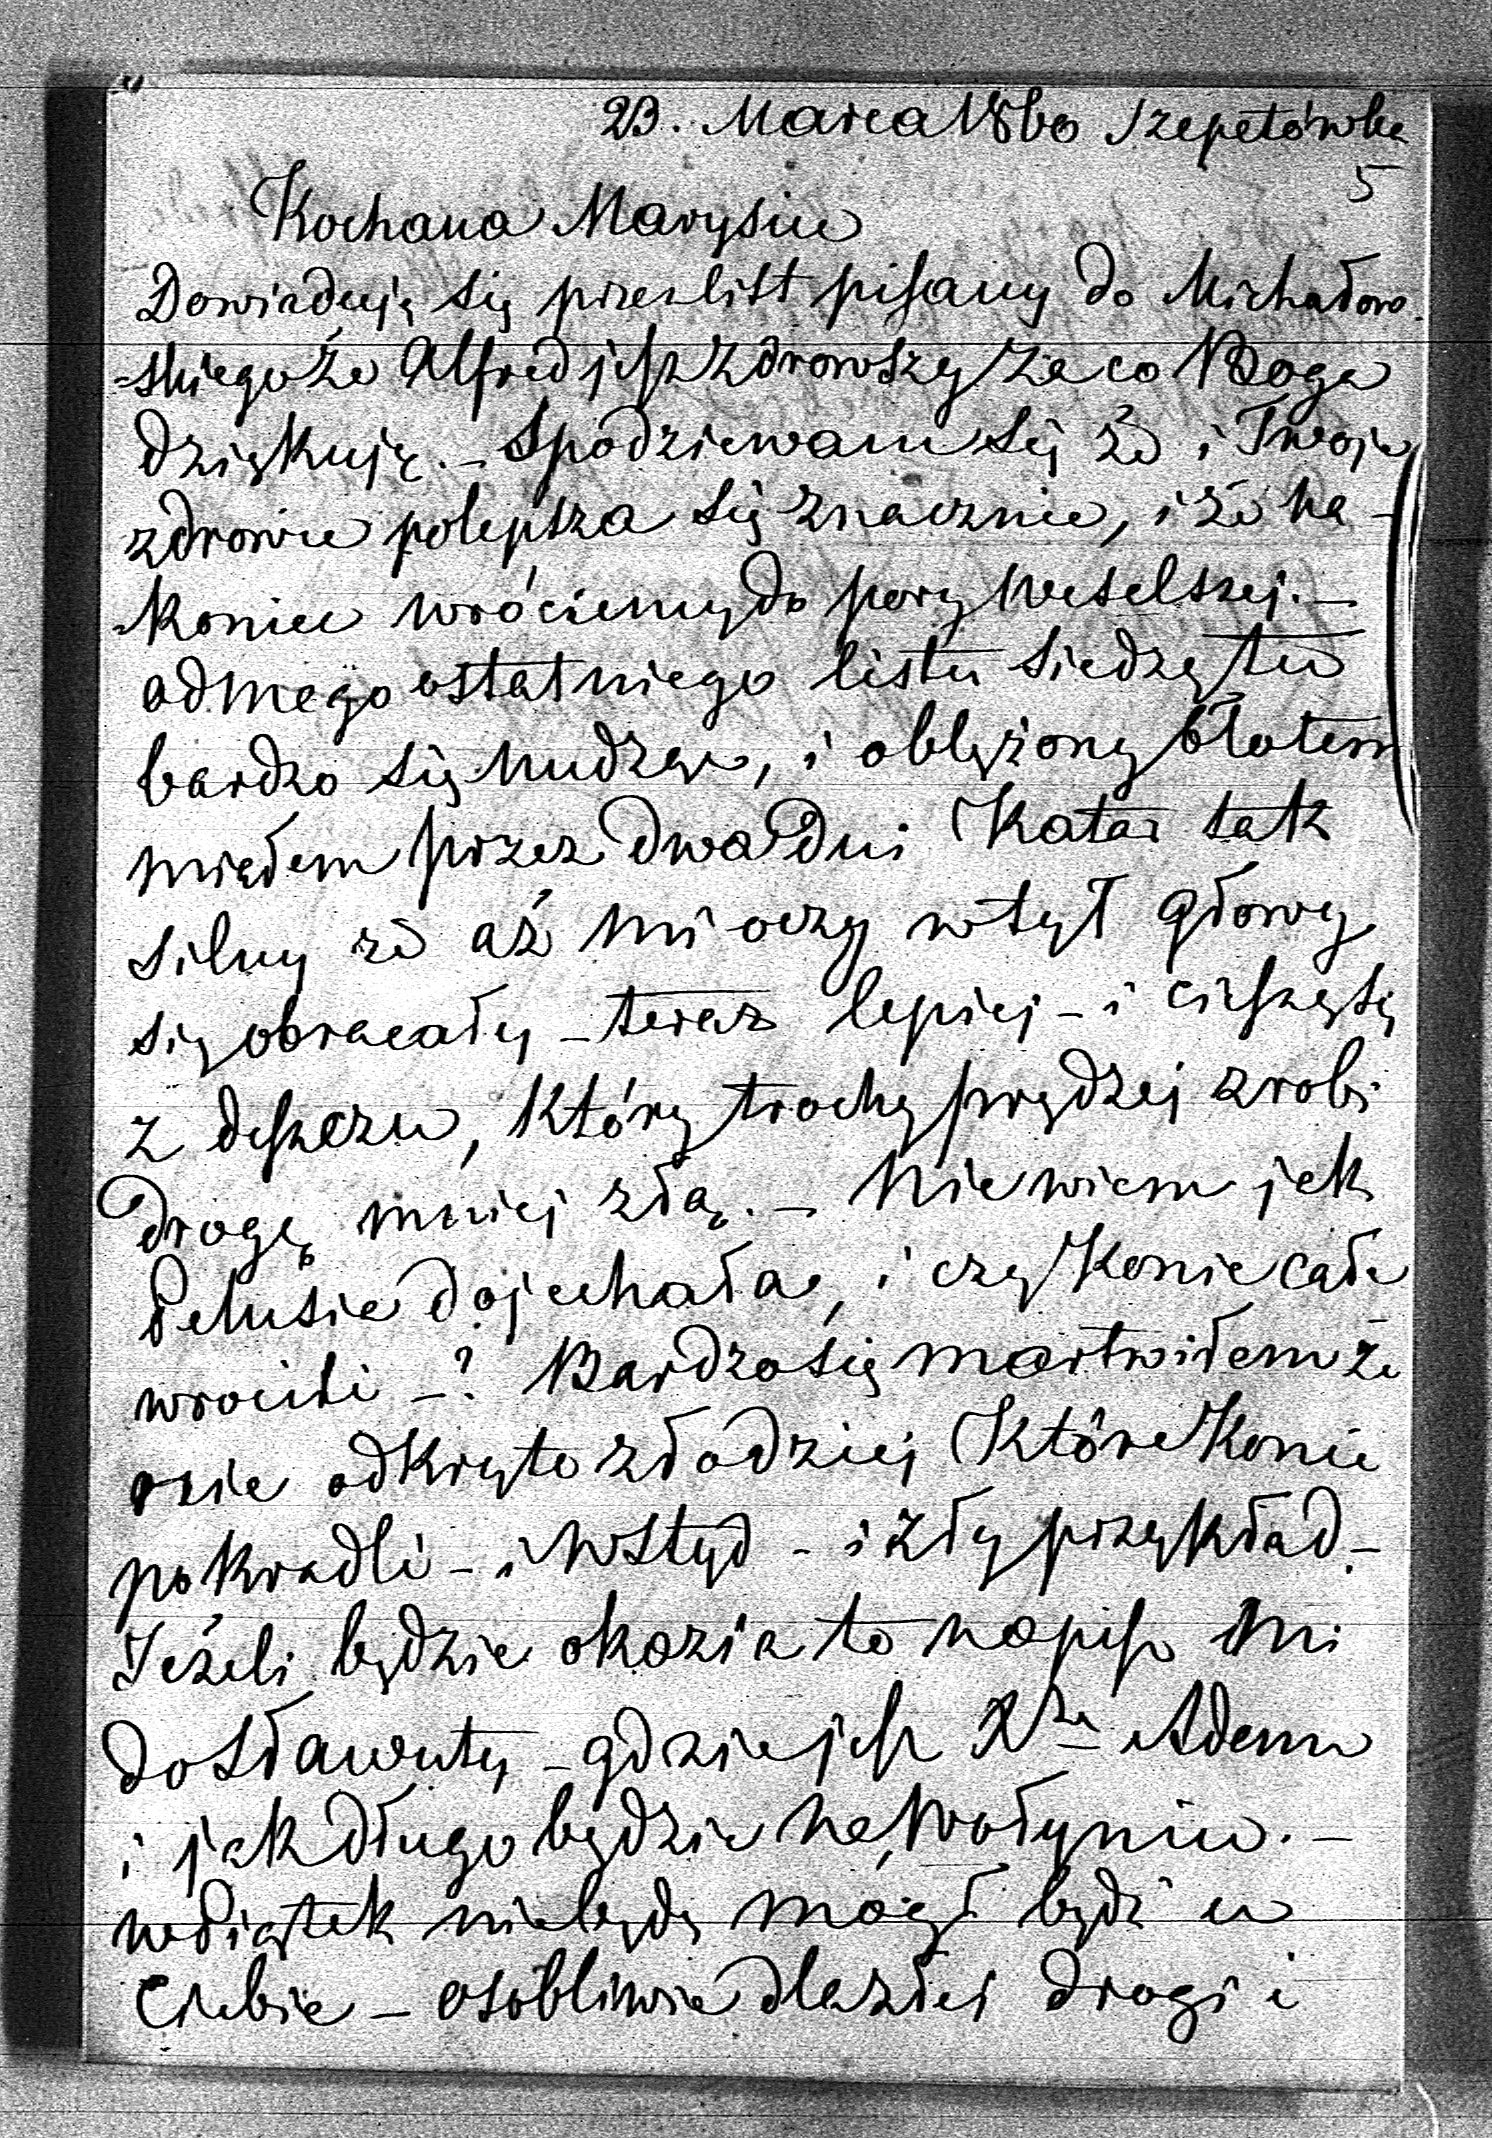 23. Marca 1860 Szepetówka
5
Kochana Marysiu
Dowiaduję się przez list pisany do Michałow
-skiego że Alfred jest zdrowszy za co Boga
dziękuję. – Spodziewam się że i Twoje
zdrowie polepsza się znacznie, i że na-
-koniec wróciemy do pory weselszej. –
od mego ostatniego listu siedzę tu
bardzo się nudząc, i oblężony błotem
miałem przez dwa dni Katar tak
silny że aż mi oczy w tył głowy
się obracały – teraz lepiej – i cieszę się
z deszczu, który trochę prędzej zrobi
drogę mniej złą. – Nie wiem jak
dojechała, i czy Konie całe
wrócili – ? Bardzo się martwiłem że
nie odkryto złodziej Które Konie
pokradli – i wstyd – i zły przykład. –
Jeżeli będzie okazia to napisz mi
do Sławuty – gdzie jest Xże Adam
i jak długo będzie na Wołyniu. –
w Piątek nie będę mógł bydź u
Ciebie – osobliwie dla złej drogi i